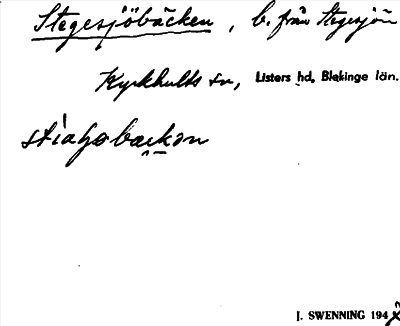 Stegesjöbäcken, b. från Stegesjön
Kyrkhults sn, Listers hd, Blekinge län.
J. SWENNING 194